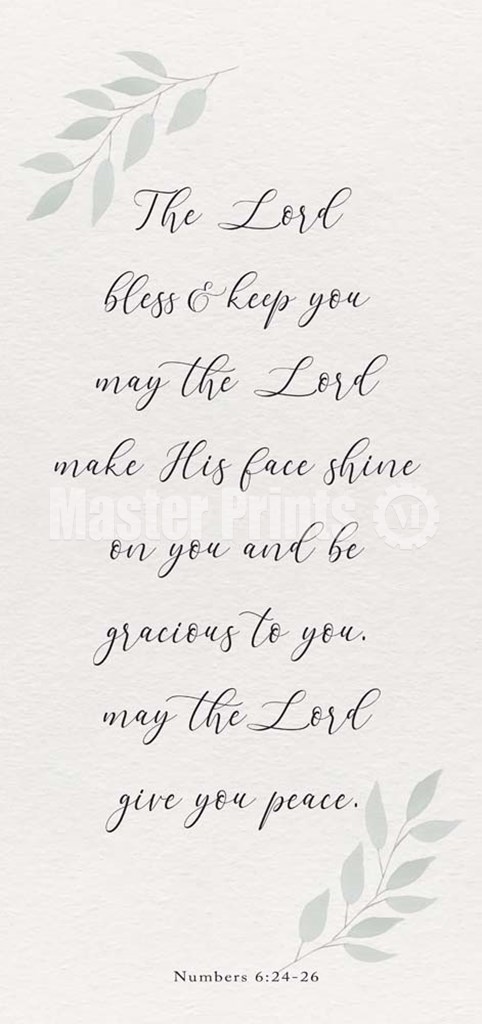 The Lord
bless & keep you
may the Lord
make His face shine
Master Prints M
on you and be
gracious to you.
may the Lord
give you peace.
Numbers 6:24-26